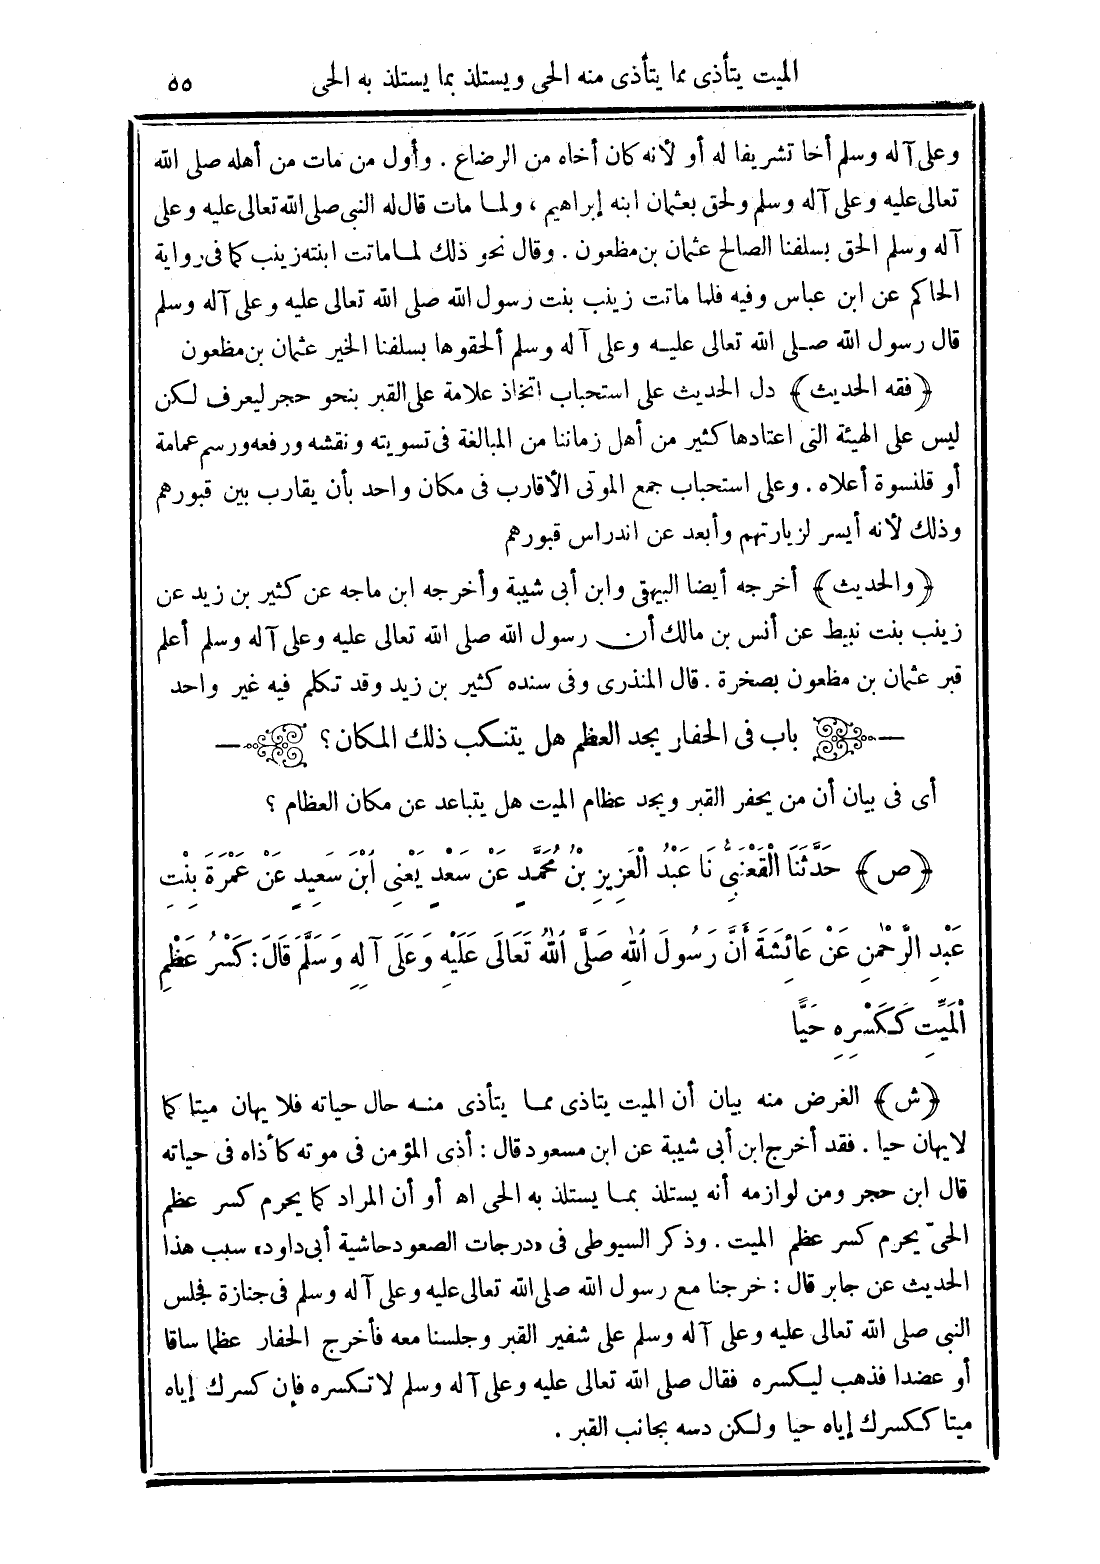 الميت يتأذى مما يتأذى منه الحى ويستلذ بما يستلذ به الحى ٥٥
وعلى آله وسلم أخا تشريفا له أو لأنه كان أخاه من الرضاع . وأول من مات من أهله صلى الله
تعالى عليه وعلى آله وسلم ولحق بعثمان ابنه إبراهيم ، ولما مات قال له النبى صلى الله تعالى عليه وعلى
آله وسلم الحق بسلفنا الصالح عثمان بن مظعون . وقال نحو ذلك لما ماتت ابنته زينب كما فى رواية
الحاكم عن ابن عباس وفيه فلما ماتت زينب بنت رسول الله صلى الله تعالى عليه وعلى آله وسلم
قال رسول الله صلى الله تعالى عليه وعلى آله وسلم ألحقوها بسلفنا الخير عثمان بن مظعون
﴿فقه الحديث﴾ دل الحديث على استحباب اتخاذ علامة على القبر بنحو حجر ليعرف لكن
ليس على الهيئة التى اعتادها كثير من أهل زماننا من المبالغة فى تسويته ونقشه ورفعه ورسم عمامة
أو قلنسوة أعلاه . وعلى استحباب جمع الموتى الأقارب فى مكان واحد بأن يقارب بين قبورهم
وذلك لأنه أيسر لزيارتهم وأبعد عن اندراس قبورهم
﴿والحديث﴾ أخرجه أيضا البيهقى وابن أبى شيبة وأخرجه ابن ماجه عن كثير بن زيد عن
زينب بنت نبيط عن أنس بن مالك أن رسول الله صلى الله تعالى عليه وعلى آله وسلم أعلم
قبر عثمان بن مظعون بصخرة . قال المنذرى وفى سنده كثير بن زيد وقد تكلم فيه غير واحد
باب فى الحفار يجد العظم هل يتنكب ذلك المكان؟
أى فى بيان أن من يحفر القبر ويجد عظام الميت هل يتباعد عن مكان العظام ؟
﴿ص﴾ حَدَّثَنَا الْقَعْنَبِىُّ نَا عَبْدُ الْعَزِيزِ بْنُ مُحَمَّدٍ عَنْ سَعْدٍ يَعْنِى ابْنَ سَعِيدٍ عَنْ عَمْرَةَ بِنْتِ
عَبْدِ الرَّحْمٰنِ عَنْ عَائِشَةَ أَنَّ رَسُولَ اللهِ صَلَّى اللهُ تَعَالَى عَلَيْهِ وَعَلَى آلِهِ وَسَلَّمَ قَالَ: كَسْرُ عَظْمِ
الْمَيِّتِ كَكَسْرِهِ حَيًّا
﴿ش﴾ الغرض منه بيان أن الميت يتاذى مما يتأذى منه حال حياته فلا يهان ميتا كما
لا يهان حيا . فقد أخرج ابن أبى شيبة عن ابن مسعود قال : أذى المؤمن فى موته كأذاه فى حياته
قال ابن حجر ومن لوازمه أنه يستلذ بما يستلذ به الحى اه أو أن المراد كما يحرم كسر عظم
الحىّ يحرم كسر عظم الميت . وذكر السيوطى فى «درجات الصعود حاشية أبى داود» سبب هذا
الحديث عن جابر قال : خرجنا مع رسول الله صلى الله تعالى عليه وعلى آله وسلم فى جنازة فجلس
النبى صلى الله تعالى عليه وعلى آله وسلم على شفير القبر وجلسنا معه فأخرج الحفار عظما ساقا
أو عضدا فذهب ليكسره فقال صلى الله تعالى عليه وعلى آله وسلم لا تكسره فإن كسرك إياه
ميتا ككسرك إياه حيا ولكن دسه بجانب القبر .